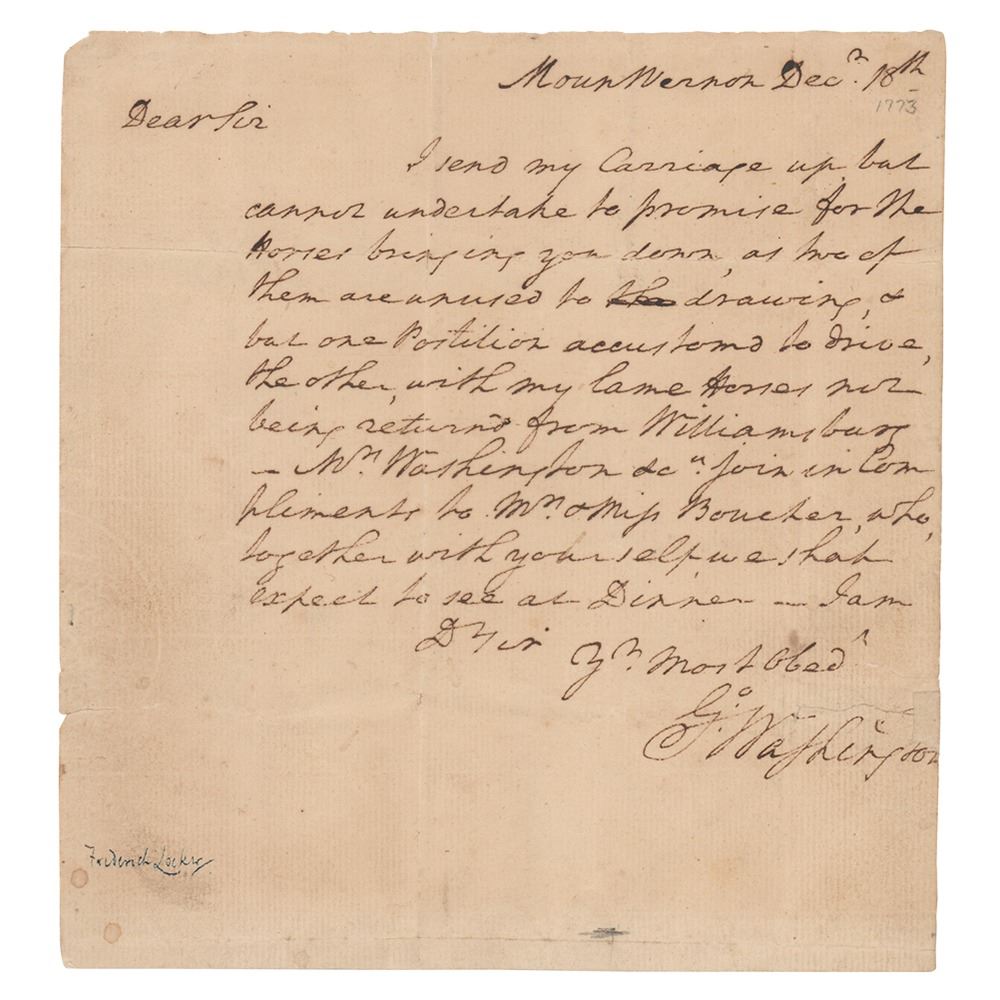 Mount Vernon Decr. 18th
1773
Dear Sir
I send my Carriage up, but
cannot undertake to promise for the
Horses bringing you down, as two of
them are unused to the drawing, &
but one Postilion accustomd to drive,
the other, with my lame Horses not
being returnd from Williamsburg
— Mrs. Washington &ca. join in Com
pliments to Mrs. & Miss Boucher, who,
together with yourself we shall
expect to see at Dinner — I am
Dr Sir
Yr. Most Obedt
Go. Washington
Frederick Locker